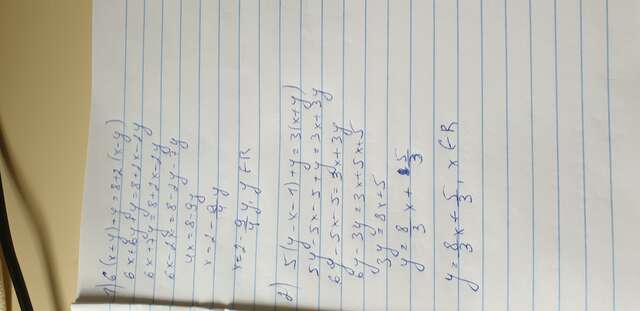 1) 6(x-y)+y=8+2(x-y)
6x+6y+y=8+2x-2y
6x+7y=8+2x-2y
6x-2x=8-2y-7y
4x=8-9y
x=2-9/4 y
x=2-9/4 y, y∈R
j) 5(y-x-1)+y=3(x+y)
5y-5x-5+y=3x+3y
6y-5x-5=3x+3y
6y-3y=3x+5x+5
3y=8x+5
y=8/3 x+5/3
y=8/3 x+5/3, x∈R